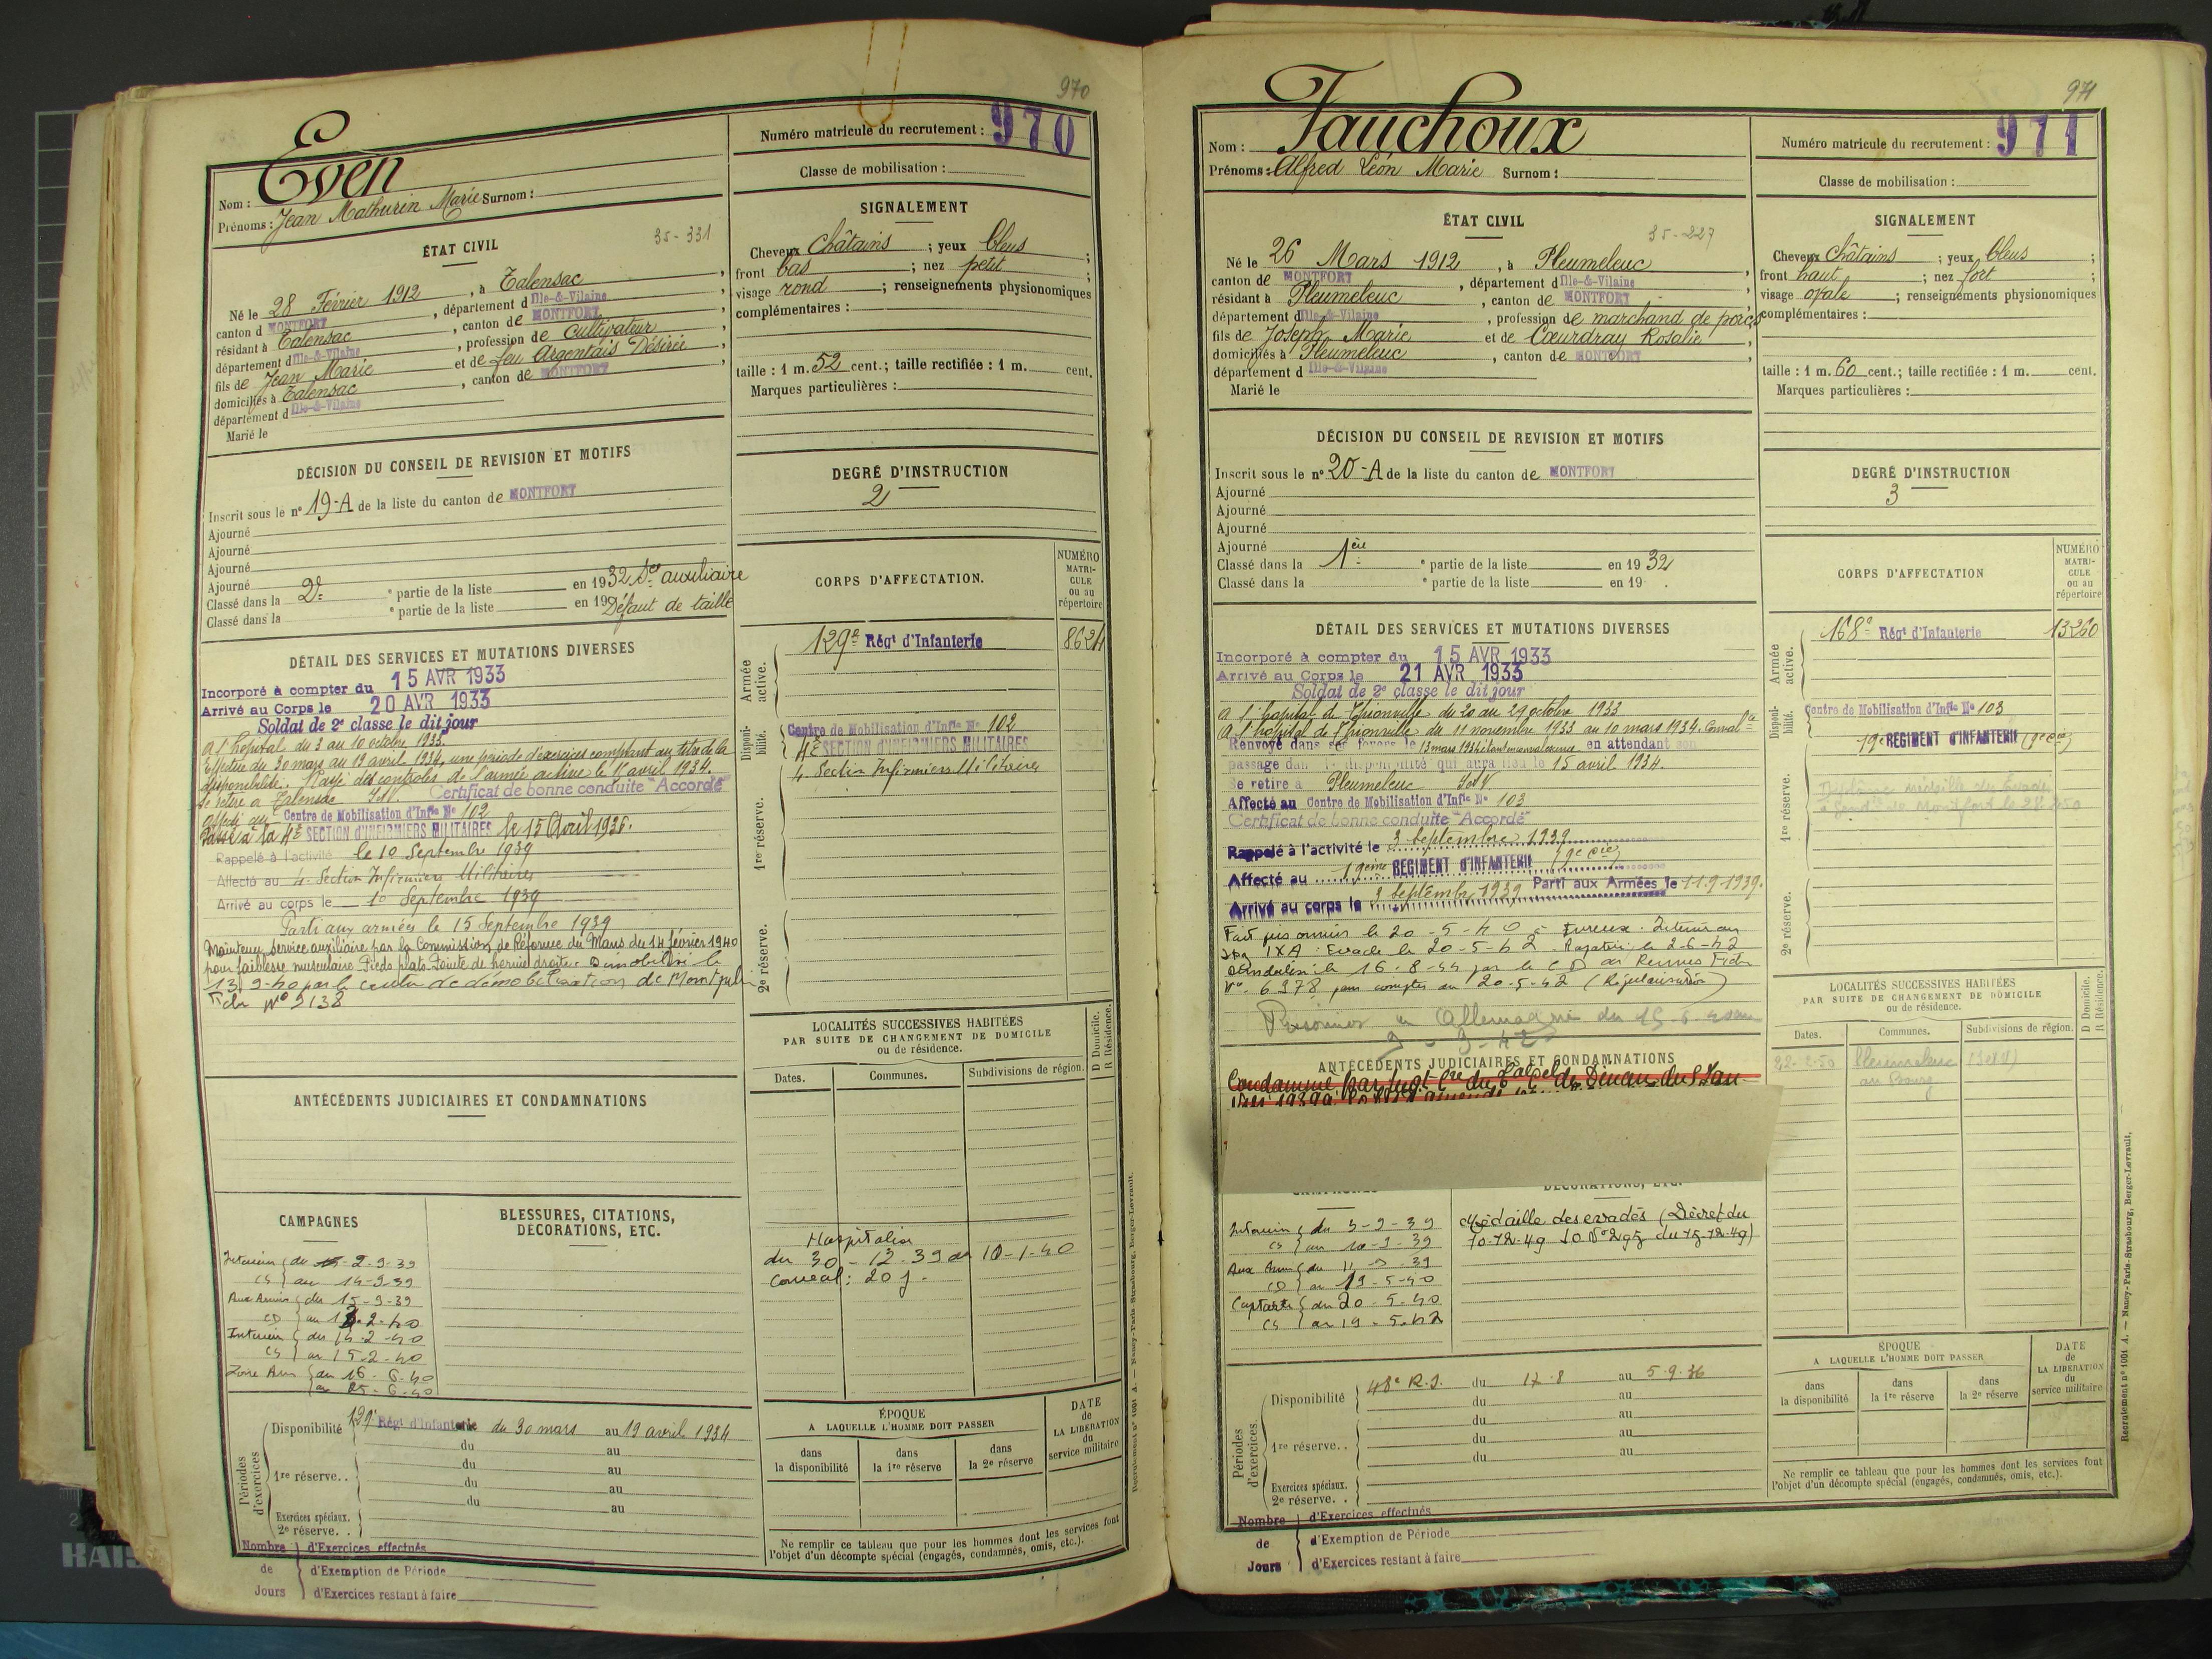 970
Even
Nom :
Prénoms : Jean Mathurin Marie Surnom :
Numéro matricule du recrutement : 970
Classe de mobilisation :
ÉTAT CIVIL
35-331
Né le 28 Février 1912, à Talensac,
canton d MONTFORT, département d Ille-&-Vilaine,
résidant à Talensac, canton de MONTFORT,
département d Ille-&-Vilaine, profession de cultivateur,
fils de Jean Marie et de feu Argentais Désirée,
domiciliés à Talensac, canton de MONTFORT,
département d Ille-&-Vilaine
Marié le
SIGNALEMENT
Cheveux châtains ; yeux bleus ;
front bas ; nez petit ;
visage rond ; renseignements physionomiques
complémentaires :
taille : 1 m. 52 cent.; taille rectifiée : 1 m. cent.
Marques particulières :
DÉCISION DU CONSEIL DE REVISION ET MOTIFS
Inscrit sous le n° 19-A de la liste du canton de MONTFORT
Ajourné
Ajourné
Ajourné
Ajourné
Classé dans la 2e ° partie de la liste en 1932 Sce auxiliaire
Classé dans la ° partie de la liste en 19 Défaut de taille
DEGRÉ D'INSTRUCTION
2
CORPS D'AFFECTATION.
NUMÉRO
MATRI-
CULE
ou au
répertoire
Armée active.
129e Régt d'Infanterie 8624
Disponi-
bilité.
Centre de Mobilisation d'Infie N° 102
4e SECTION D'INFIRMIERS MILITAIRES
4. Section Infirmiers Militaires
1re réserve.
2e réserve.
DÉTAIL DES SERVICES ET MUTATIONS DIVERSES
Incorporé à compter du 15 AVR 1933
Arrivé au Corps le 20 AVR 1933
Soldat de 2e classe le dit jour
A l'hôpital du 3 au 10 octobre 1933.
Effectue du 30 mars au 19 avril 1934, une période d'exercices comptant au titre de la
disponibilité. Rayé des contrôles de l'armée active le 15 avril 1934.
Se retire à Talensac I&V. Certificat de bonne conduite "Accordé"
Affecté au Centre de Mobilisation d'Infie N° 102
Passé à la 4e SECTION D'INFIRMIERS MILITAIRES le 15 Avril 1936.
Rappelé à l'activité le 10 Septembre 1939
Affecté au 4. Section Infirmiers Militaires
Arrivé au corps le 10 Septembre 1939
Parti aux armées le 15 Septembre 1939
Maintenu service auxiliaire par la Commission de Réforme du Mans du 14 février 1940
pour faiblesse musculaire. Pieds plats. Pointe de hernie droite. Démobilisé le
13-9-40 par le centre de démobilisation de
N° 2138
LOCALITÉS SUCCESSIVES HABITÉES
PAR SUITE DE CHANGEMENT DE DOMICILE
ou de résidence.
Dates. Communes. Subdivisions de région.
D Domicile.
R Résidence.
Hospitalisé
du 30-12-39 au 10-1-40
Conval : 20 j.
ANTÉCÉDENTS JUDICIAIRES ET CONDAMNATIONS
CAMPAGNES
Intérieur du 2-9-39
CS au 14-9-39
Aux Armées du 15-9-39
CD au 13-2-40
Intérieur du 14-2-40
CS au 15-2-40
Zone Arm du 16-6-40
au 25-6-40
BLESSURES, CITATIONS,
DÉCORATIONS, ETC.
Périodes d'exercices
Disponibilité 129e Régt d'Infanterie du 30 mars au 19 avril 1934
du au
1re réserve.. du au
du au
du au
Exercices spéciaux.
2e réserve..
Nombre de Jours
d'Exercices effectués
d'Exemption de Période
d'Exercices restant à faire
ÉPOQUE
A LAQUELLE L'HOMME DOIT PASSER
dans la disponibilité
dans la 1re réserve
dans la 2e réserve
DATE de LA LIBÉRATION du service militaire
Ne remplir ce tableau que pour les hommes dont les services font
l'objet d'un décompte spécial (engagés, condamnés, omis, etc.).
971
Nom : Fauchoux
Prénoms : Alfred Léon Marie Surnom :
Numéro matricule du recrutement : 971
Classe de mobilisation :
ÉTAT CIVIL
35-227
Né le 26 Mars 1912, à Pleumeleuc,
canton de MONTFORT, département d Ille-&-Vilaine,
résidant à Pleumeleuc, canton de MONTFORT
département d Ille-&-Vilaine, profession de marchand de porcs
fils de Joseph Marie et de Cœurdray Rosalie,
domiciliés à Pleumeleuc, canton de MONTFORT
département d Ille-&-Vilaine
Marié le
SIGNALEMENT
Cheveux châtains ; yeux bleus ;
front haut ; nez fort ;
visage ovale ; renseignements physionomiques
complémentaires :
taille : 1 m. 60 cent.; taille rectifiée : 1 m. cent.
Marques particulières :
DÉCISION DU CONSEIL DE REVISION ET MOTIFS
Inscrit sous le n° 20-A de la liste du canton de MONTFORT
Ajourné
Ajourné
Ajourné
Ajourné
Classé dans la 1ère ° partie de la liste en 1932
Classé dans la ° partie de la liste en 19 .
DEGRÉ D'INSTRUCTION
3
CORPS D'AFFECTATION
NUMÉRO
MATRI-
CULE
ou au
répertoire
Armée active.
168e Régt d'Infanterie 13260
Disponi-
bilité.
Centre de Mobilisation d'Infie N° 103
19e REGIMENT D'INFANTERIE (9e Cie)
1re réserve.
2e réserve.
DÉTAIL DES SERVICES ET MUTATIONS DIVERSES
Incorporé à compter du 15 AVR 1933
Arrivé au Corps le 21 AVR 1933
Soldat de 2e classe le dit jour
A l'hôpital de Thionville du 20 au 29 octobre 1933
A l'hôpital de Thionville du 11 novembre 1933 au 10 mars 1934. Convalce
Renvoyé dans ses foyers le 13 mars 1934 étant en convalescence en attendant son
passage dans la disponibilité qui aura lieu le 15 avril 1934.
Se retire à Pleumeleuc I&V.
Affecté au Centre de Mobilisation d'Infie N° 103
Certificat de bonne conduite "Accordé"
Rappelé à l'activité le 3 Septembre 1939
Affecté au 19ème REGIMENT D'INFANTERIE (9e Cie)
Arrivé au corps le 3 Septembre 1939 Parti aux Armées le 11.9.1939.
Fait prisonnier le 20-5-40 à Evreux. Interné au
Stag IXA. Evadé le 20-5-42. Rapatrié le 2-6-42
Démobilisé le 16-8-44 par le CD de Rennes Fiche
N°. 6978 pour compter du 20-5-42 (Régularisation)
Prisonnier en Allemagne du
ANTÉCÉDENTS JUDICIAIRES ET CONDAMNATIONS
Condamné par
LOCALITÉS SUCCESSIVES HABITÉES
PAR SUITE DE CHANGEMENT DE DOMICILE
ou de résidence.
Dates. Communes. Subdivisions de région.
D Domicile.
R Résidence.
22-2-50 Pleumeleuc (I&V)
au Bourg
Intérieur du 3-9-39
CS au 10-9-39
Aux Arm du 11-9-39
CD au 19-5-40
Captivité du 20-5-40
CS au 19-5-42
Médaille des evadés (Décret du
10-12-49 JO N° 295 du 15-12-49)
Périodes d'exercices
Disponibilité 48e R.I. du 17.8 au 5.9.36
du au
du au
1re réserve.. du au
du au
Exercices spéciaux.
2e réserve..
Nombre de Jours
d'Exercices effectués
d'Exemption de Période
d'Exercices restant à faire
ÉPOQUE
A LAQUELLE L'HOMME DOIT PASSER
dans la disponibilité
dans la 1re réserve
dans la 2e réserve
DATE de LA LIBÉRATION du service militaire
Ne remplir ce tableau que pour les hommes dont les services font
l'objet d'un décompte spécial (engagés, condamnés, omis, etc.).
Recrutement n° 1001 A. — Nancy-Paris-Strasbourg, Berger-Levrault.